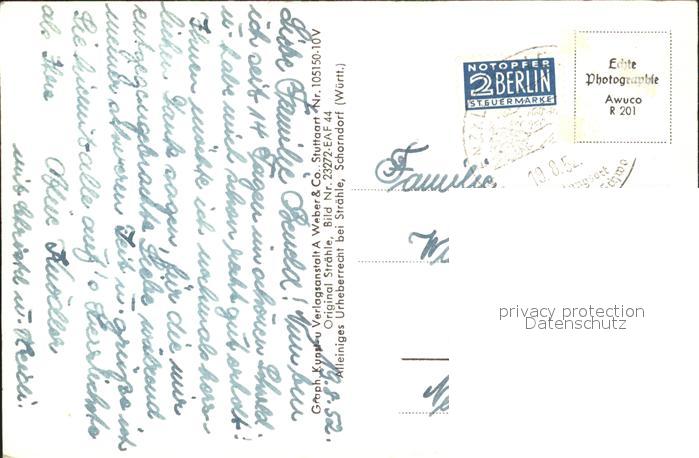 19.8.52.
Liebe Familie
ich seit 14 Tagen im schönen
u. habe mich schon recht gut erholt!
Ihnen möchte ich nochmals herz-
lichen Dank sagen, für die mir
entgegengebrachte Liebe während
meiner schweren Zeit u. grüsse ich
Sie hiermit alle auf's Herzlichste
als Ihre
mit u.
Graph. Kunst- u. Verlagsanstalt A. Weber & Co. Stuttgart - Nr. 105150-10V
Original Strähle, Bild Nr. 23272-EAF 44
Alleiniges Urheberrecht bei Strähle, Schorndorf (Württ.)
NOTOPFER
2 BERLIN
STEUERMARKE
Echte
Photographie
Awuco
R 201
19.8.52
Familie
privacy protection
Datenschutz